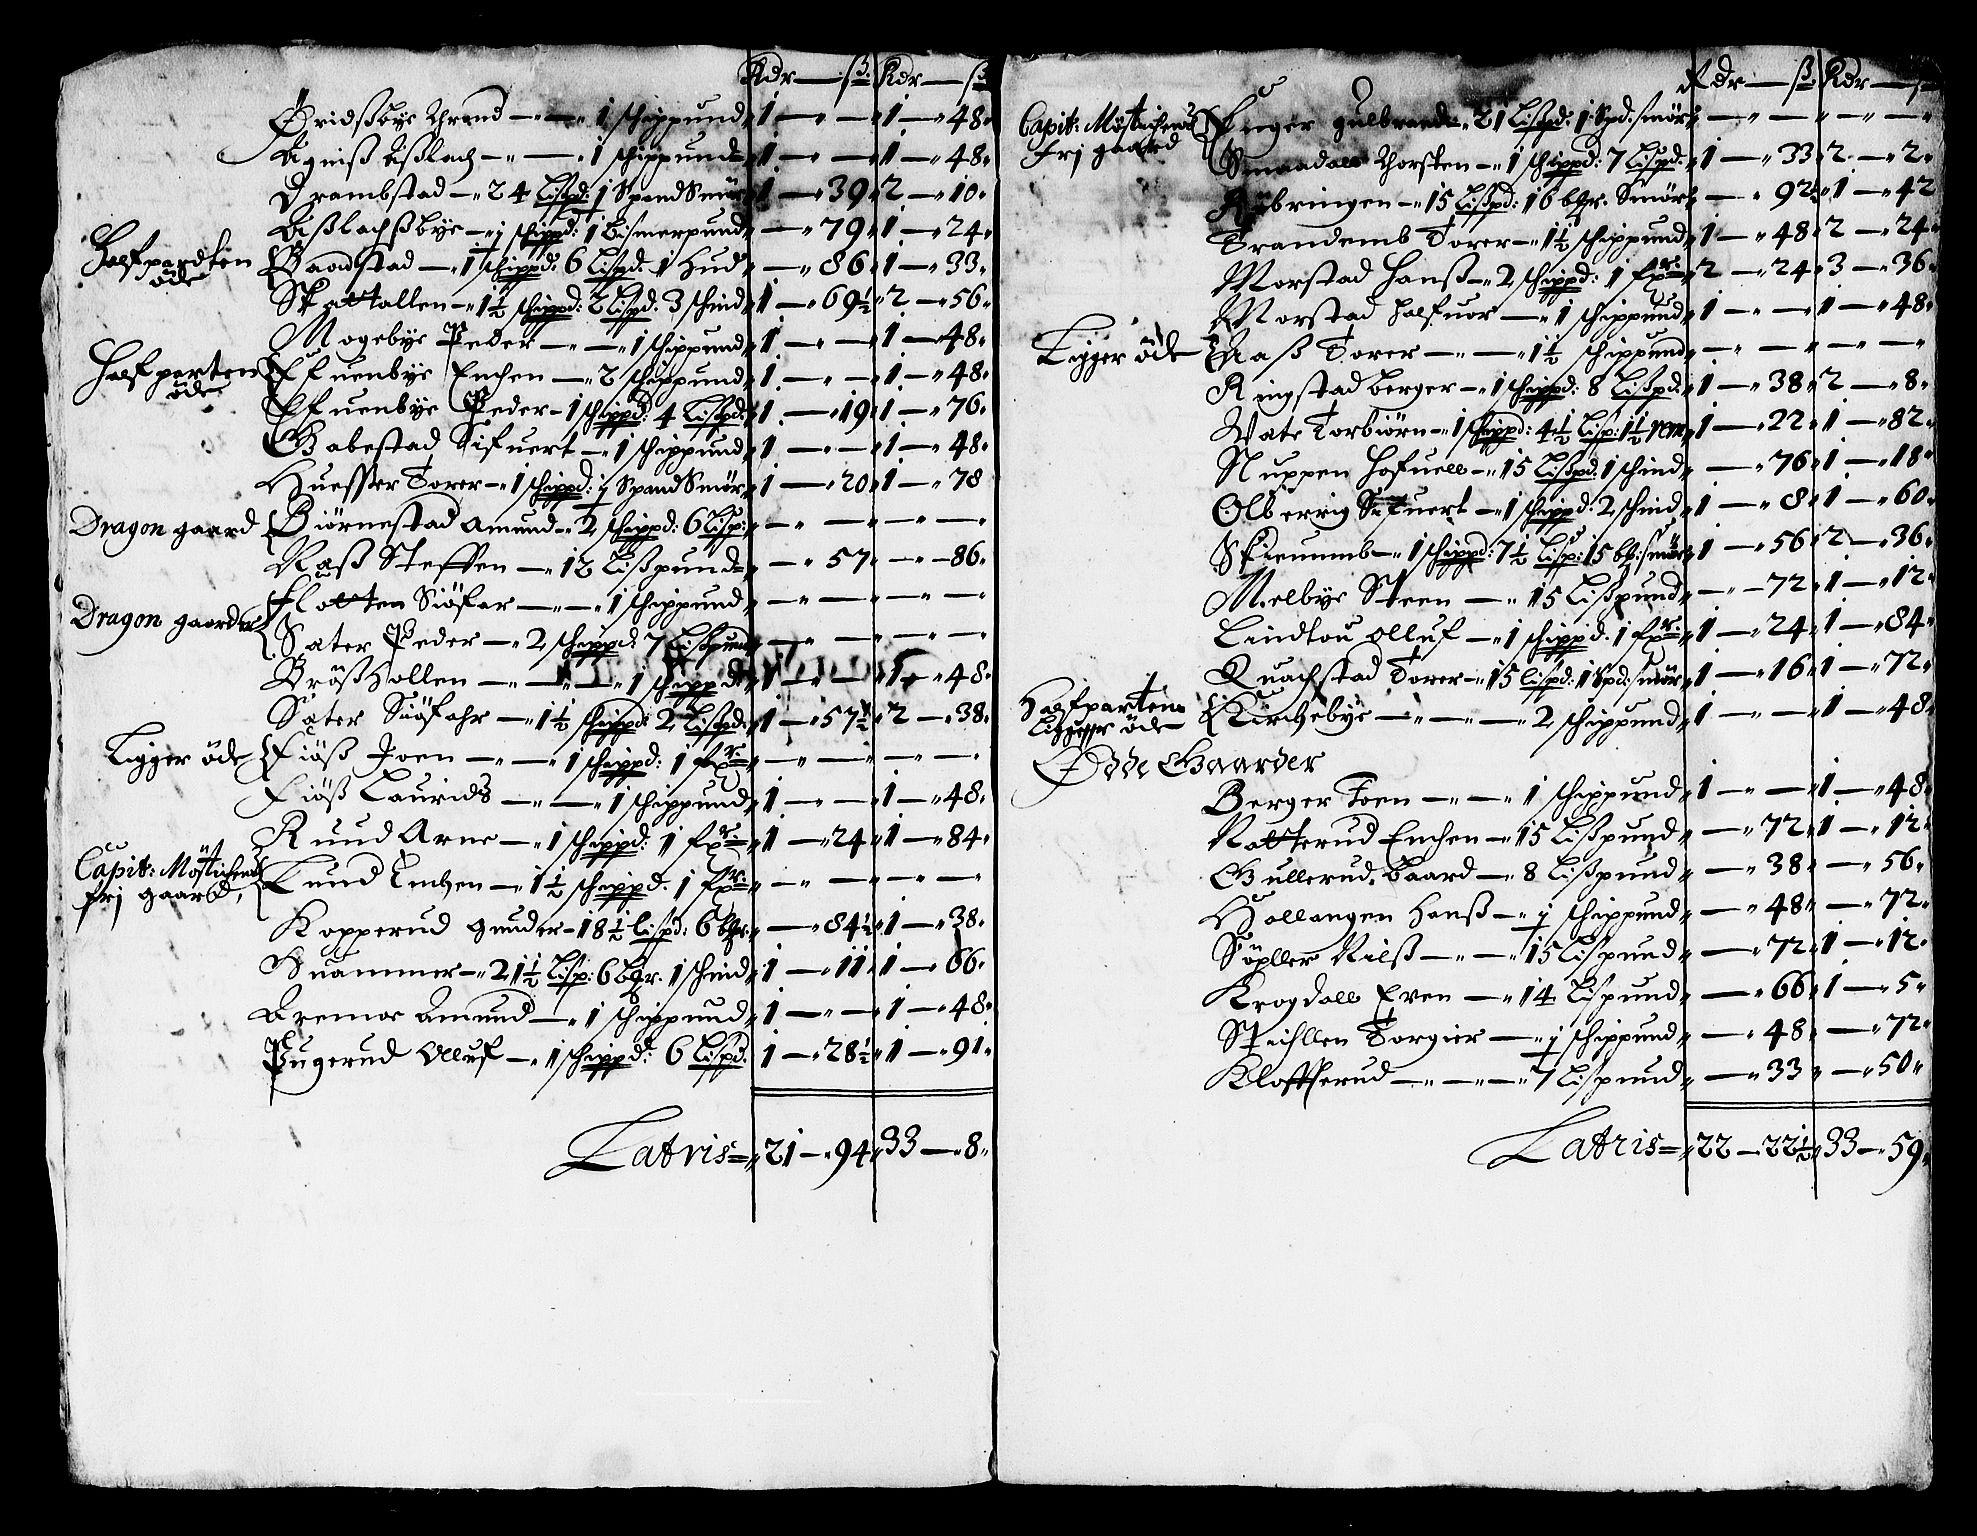 Rdr — ß Rdr — ß
Gridßbye Thrond — „ — „ 1 schippund „ 1 — „ — „ 1 — „ 48 „
Aigniß Aßlach — „ — „ 1 schippund „ 1 — „ — „ 1 — „ 48 „
Drambstad — „ 24 Lißpd: 1 Spand Smör „ 1 — „ 39 „ 2 — „ 10 „
Aißlachßbye — „ ½ schippd: 1 Bismerpund „ — „ 79 „ 1 — „ 24 „
Halfpardten öde
Baadstad — „ 1 schippd: 6 Lispd: 1 Hud „ — „ 86 „ 1 — „ 33 „
Skattallen — „ 1½ schippd: 2 Lispd: 3 schind „ 1 — „ 69½ „ 2 — „ 56 „
Mogebye Peder — „ — „ 1 schippund „ 1 — „ — „ 1 — „ 48 „
Halfparten öde
Efuenbye Enchen — „ 2 schippund „ 1 — „ — „ 1 — „ 48 „
Efuenbye Peder — „ 1 schippd: 4 Lispd: „ 1 — „ 19 „ 1 — „ 76 „
Gabestad Sifuert — „ 1 schippund „ 1 — „ — „ 1 — „ 48 „
Huesser Torer — „ 1 schippd: ½ Spand Smör „ 1 — „ 20 „ 1 — „ 78
Dragon gaard
Biörnestad Amund — „ 2 schippd: 6 Lisp: „ — „ — „ — „ —
Naß Steffen — „ 12 Lißpund „ — „ 57 „ — „ 86 „
Dragon gaarder
Flatten Siöfar — „ — „ 1 schippund „ — „ — „ — „ —
Sater Peder — „ 2 schippd: 7 Lispund „ — „ — „ — „ —
Bröß Hollen — „ — „ — „ 1 schippd: „ 1 — „ — „ 1 — „ 48 „
Sater Siöfahr — „ 1½ schippd: 2 Lispd: „ 1 — „ 57½ „ 2 — „ 38 „
Ligger öde
Fiöß Joen — „ — „ 1 schippd: 1 fxr: „ — „ — „ — „ —
Fiöß Laurids — „ — „ 1 schippund „ 1 — „ — „ 1 — „ 48 „
Rund Arne — „ 1 schippd: 1 fxr: „ 1 — „ 24 „ 1 — „ 84 „
Capit: Möstichens frj gaard,
Lund Enchen — „ 1½ schippd: 1 fxr: „ — „ — „ — „ —
Kopperud Gunder — 18½ lispd: 6 bgr: „ — „ 84½ „ 1 — „ 38 „
Suammer — „ 21½ Lisp: 6 bgr. 1 schind „ 1 — „ 11 „ 1 — „ 66 „
Aremoe Amund — „ 1 schippund „ 1 — „ — „ 1 — „ 48 „
Pugerud Olluf — „ 1 schippd: 6 Lispd. „ 1 — „ 28½ „ 1 — „ 91 „
Latris = „ 21 — „ 94 „ 33 — „ 8 „
Rdr — ß Rdr — ß
Capit: Möstichens Frj gaard
Enger gulbrand — „ 21 Lißpd: 1 Spd: smör „ — „ — „ — „ —
Smaadall Thorsten — „ 1 schippd: 7 Lispd: „ 1 — „ 33 „ 2 — „ 2 „
Kiöbringen — „ 15 Lißpd: 16 bgr. Smör „ — „ 92½ „ 1 — „ 42
Trandemb Torer — „ 1½ schippund „ 1 — „ 48 „ 2 — „ 24 „
Morstad Hanß — „ 2 schippd: 1 fxr: „ 2 — „ 24 „ 3 — „ 36 „
Morstad Halfuor — „ 1 schippund „ 1 — „ — „ 1 — „ 48 „
Ligger öde
Naß Torer — „ — „ 1½ schippund „ — „ — „ — „ —
Ringstad berger — „ 1 schippd: 8 Lispd: „ 1 — „ 38 „ 2 — „ 8 „
Vate Torbiörn — „ 1 schippd: 4½ Lisp: 1½ rem „ 1 — „ 22 „ 1 — „ 82 „
Nuppen Hofuell — „ 15 Lißpd: 1 schind „ — „ 76 „ 1 — „ 18 „
Olberrig Sifuert — „ 1 schippd: 2 schind „ 1 — „ 8 „ 1 — „ 60 „
Skieuumb — „ 1 schippd: 7½ Lisp: 15 bg: smör „ 1 — „ 56 „ 2 — „ 36 „
Melbye Steen — „ 15 Lißpund „ — „ 72 „ 1 — „ 12 „
Lindtou Olluf — „ 1 schippd: 1 fxr: „ 1 — „ 24 „ 1 — „ 84 „
Quachstad Torer — „ 15 lispd: 1 Spd: smör „ 1 — „ 16 „ 1 — „ 72 „
Halfparten Ligger öde
Kirchebye — „ — „ — „ 2 schippund „ 1 — „ — „ 1 — „ 48 „
Ödde Gaarder
Berger Toen — „ — „ 1 schippund „ 1 — „ — „ 1 — „ 48 „
Natterud Enchen — „ 15 Lißpund „ — „ 72 „ 1 — „ 12 „
Gullerud. Baard — „ 8 Lißpund „ — „ 38 „ — „ 56 „
Hallangen Hanß — „ ½ schippund „ — „ 48 „ — „ 72 „
Söpller Nilß — „ — „ 15 Lispund „ — „ 72 „ 1 — „ 12 „
Krogdall Even — „ 14 Lispund „ — „ 66 „ 1 — „ 5 „
Stichllen Torgier — „ ½ schippund „ — „ 48 „ — „ 72 „
Kloffterud — „ — „ — „ 7 Lispund „ — „ 33 „ — „ 50 „
Latris = „ 22 — „ 22½ „ 33 — „ 59 „